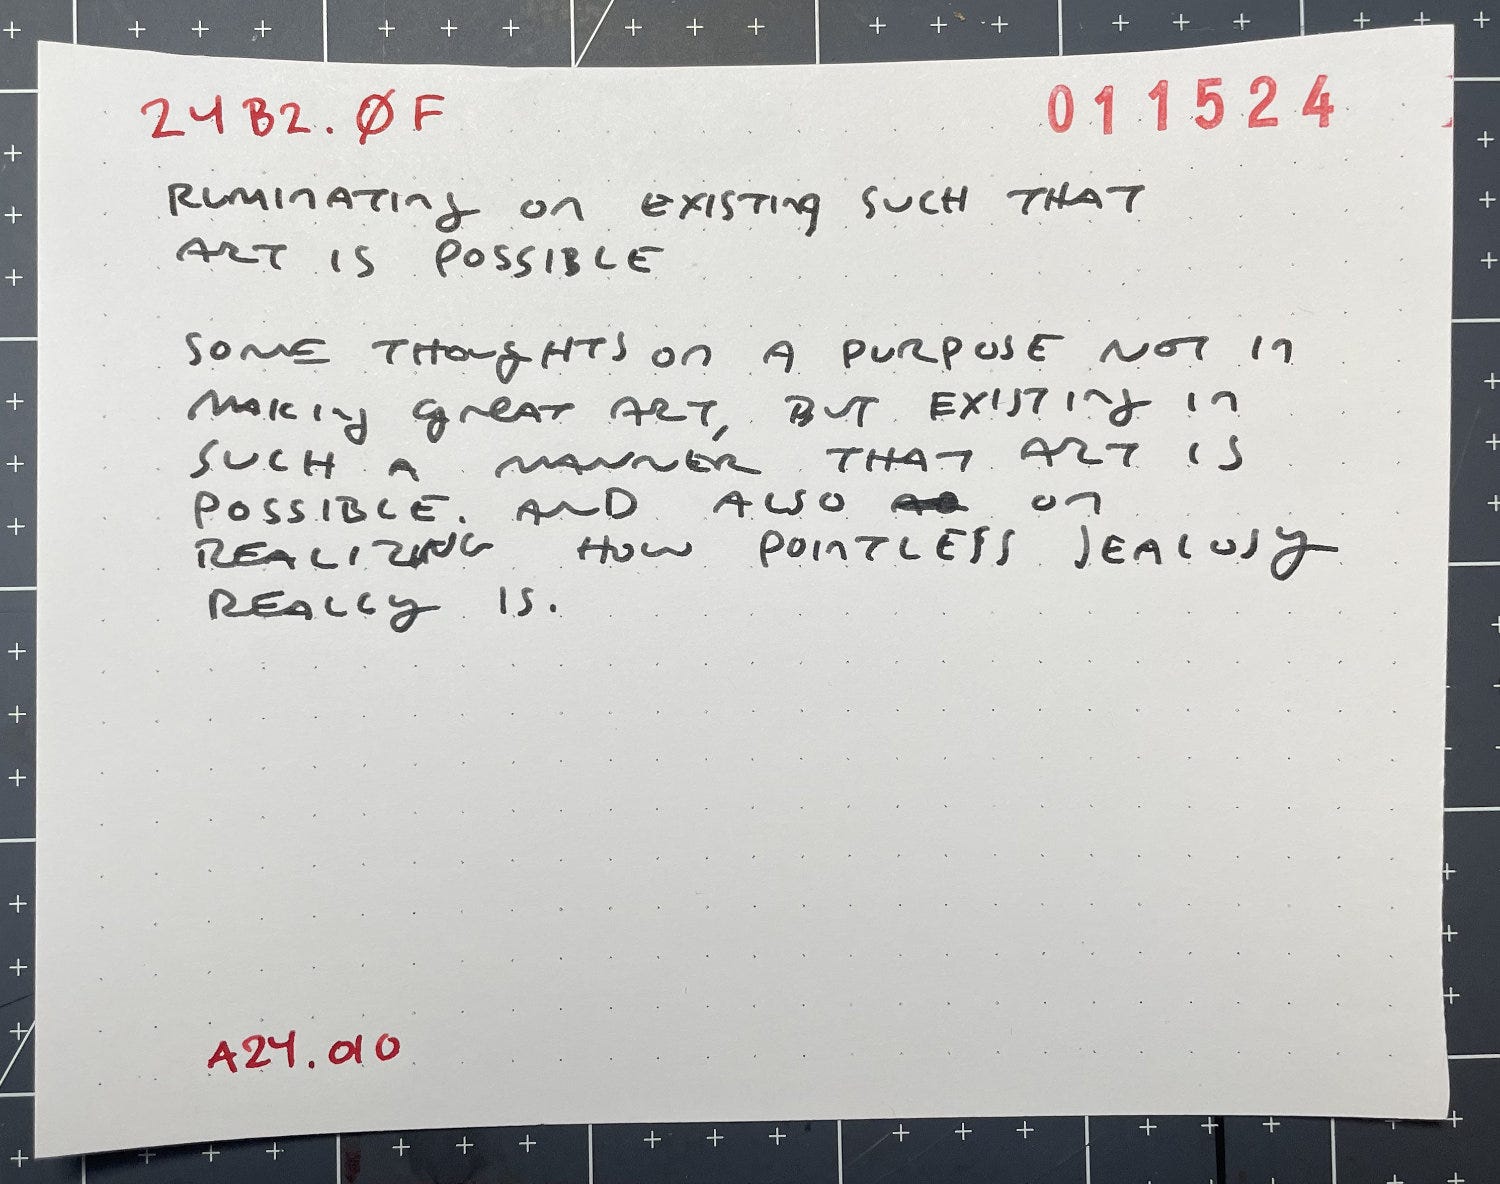 24B2.ØF 011524
RUMINATING ON EXISTING SUCH THAT
ART IS POSSIBLE
SOME THOUGHTS ON A PURPOSE NOT IN
MAKING GREAT ART, BUT EXISTING IN
SUCH A MANNER THAT ART IS
POSSIBLE. AND ALSO ON
REALIZING HOW POINTLESS JEALOUSY
REALLY IS.
A24.010